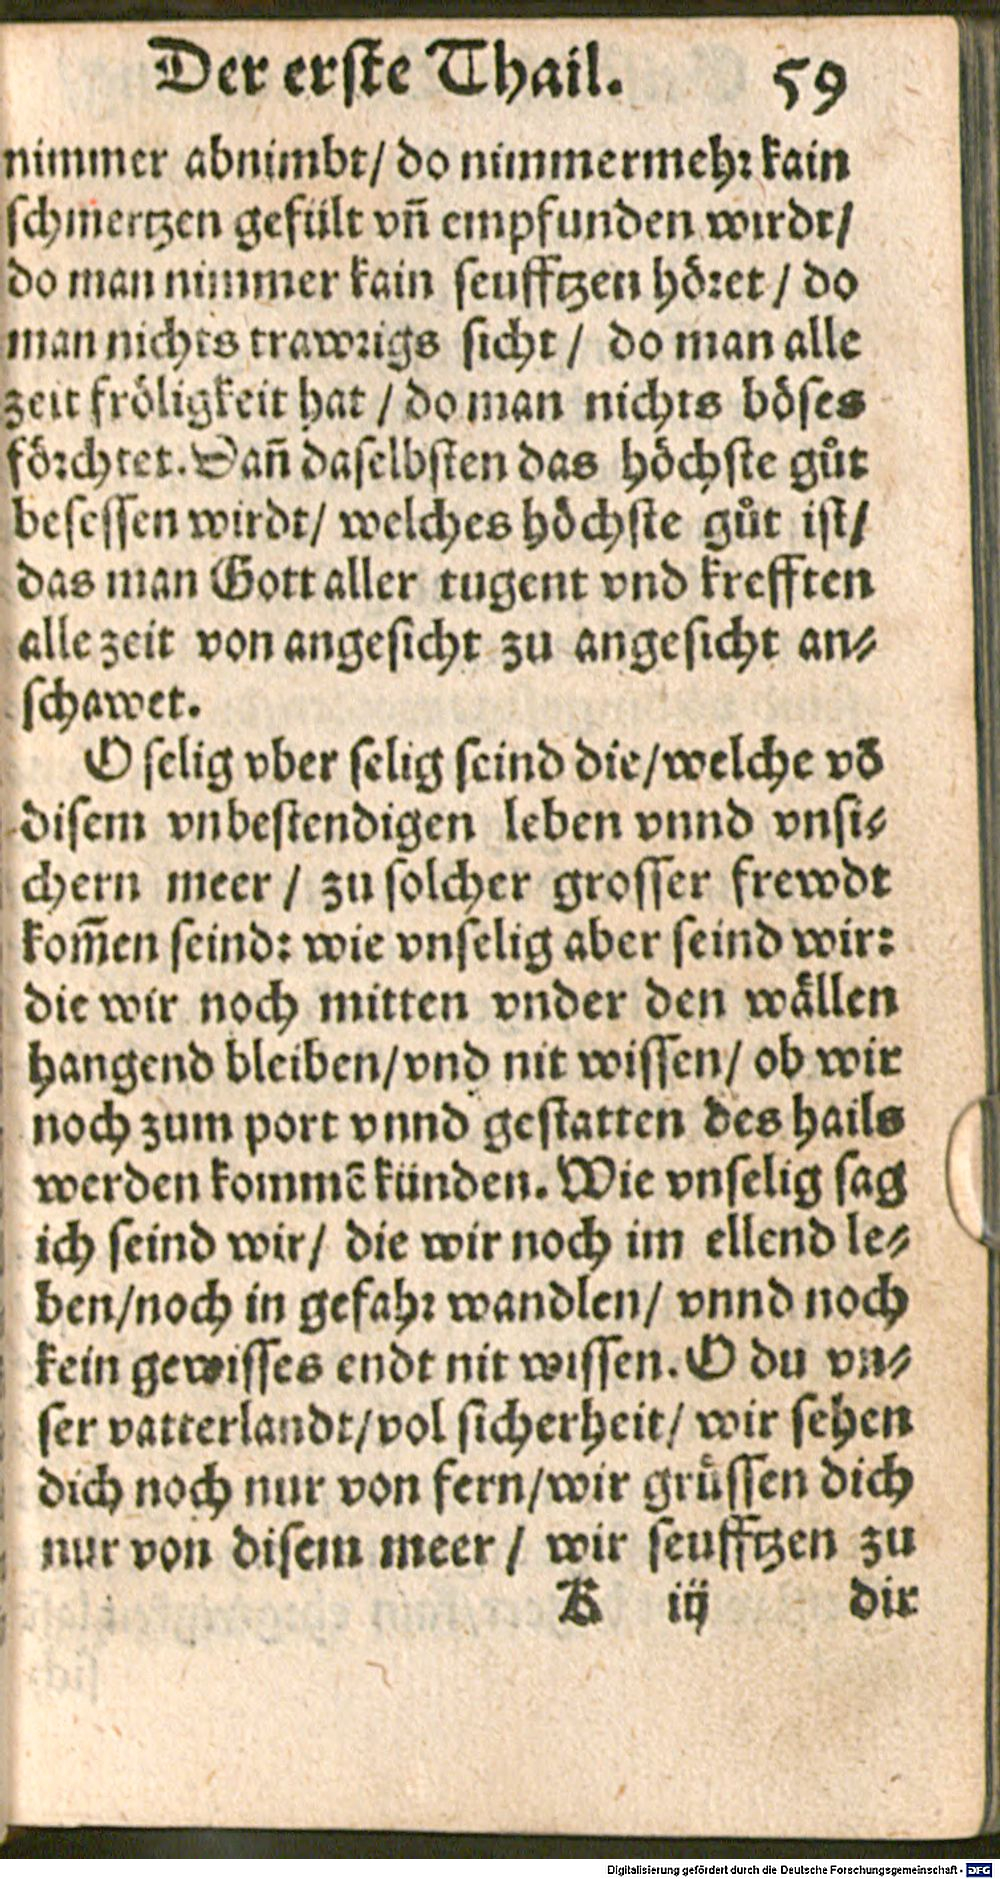 Der erſte Thail. 59
nimmer abnimbt/ do nimmermehꝛ kain
ſchmertzen gefült vñ empfunden wirdt/
do man nimmer kain ſeufftzen höꝛet / do
man nichts trawꝛigs ſicht / do man alle
zeit fröligkeit hat / do man nichts böſes
föꝛchtet. Dañ daſelbſten das höchſte gůt
beſeſſen wirdt/ welches höchſte gůt iſt/
das man Gott aller tugent vnd krefften
alle zeit von angeſicht zu angeſicht an⸗
ſchawet.
O ſelig vber ſelig ſeind die/welche võ
diſem vnbeſtendigen leben vnnd vnſi⸗
chern meer / zu ſolcher groſſer frewdt
kom̃en ſeind: wie vnſelig aber ſeind wir:
die wir noch mitten vnder den wällen
hangend bleiben/vnd nit wiſſen/ ob wir
noch zum port vnnd geſtatten des hails
werden kommẽ künden. Wie vnſelig ſag
ich ſeind wir/ die wir noch im ellend le⸗
ben/noch in gefahꝛ wandlen/ vnnd noch
kein gewiſſes endt nit wiſſen. O du vn⸗
ſer vatterlandt/vol ſicherheit/ wir ſehen
dich noch nur von fern/wir grüſſen dich
nur von diſem meer / wir ſeufftzen zu
K iij dir
Digitalisierung gefördert durch die Deutsche Forschungsgemeinschaft - DFG